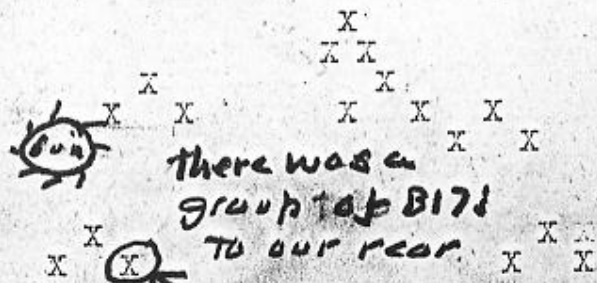 X
X X
X X
X X X X X
X X
Sun
there was a
group B17s
To our rear.
X X X
X X X X